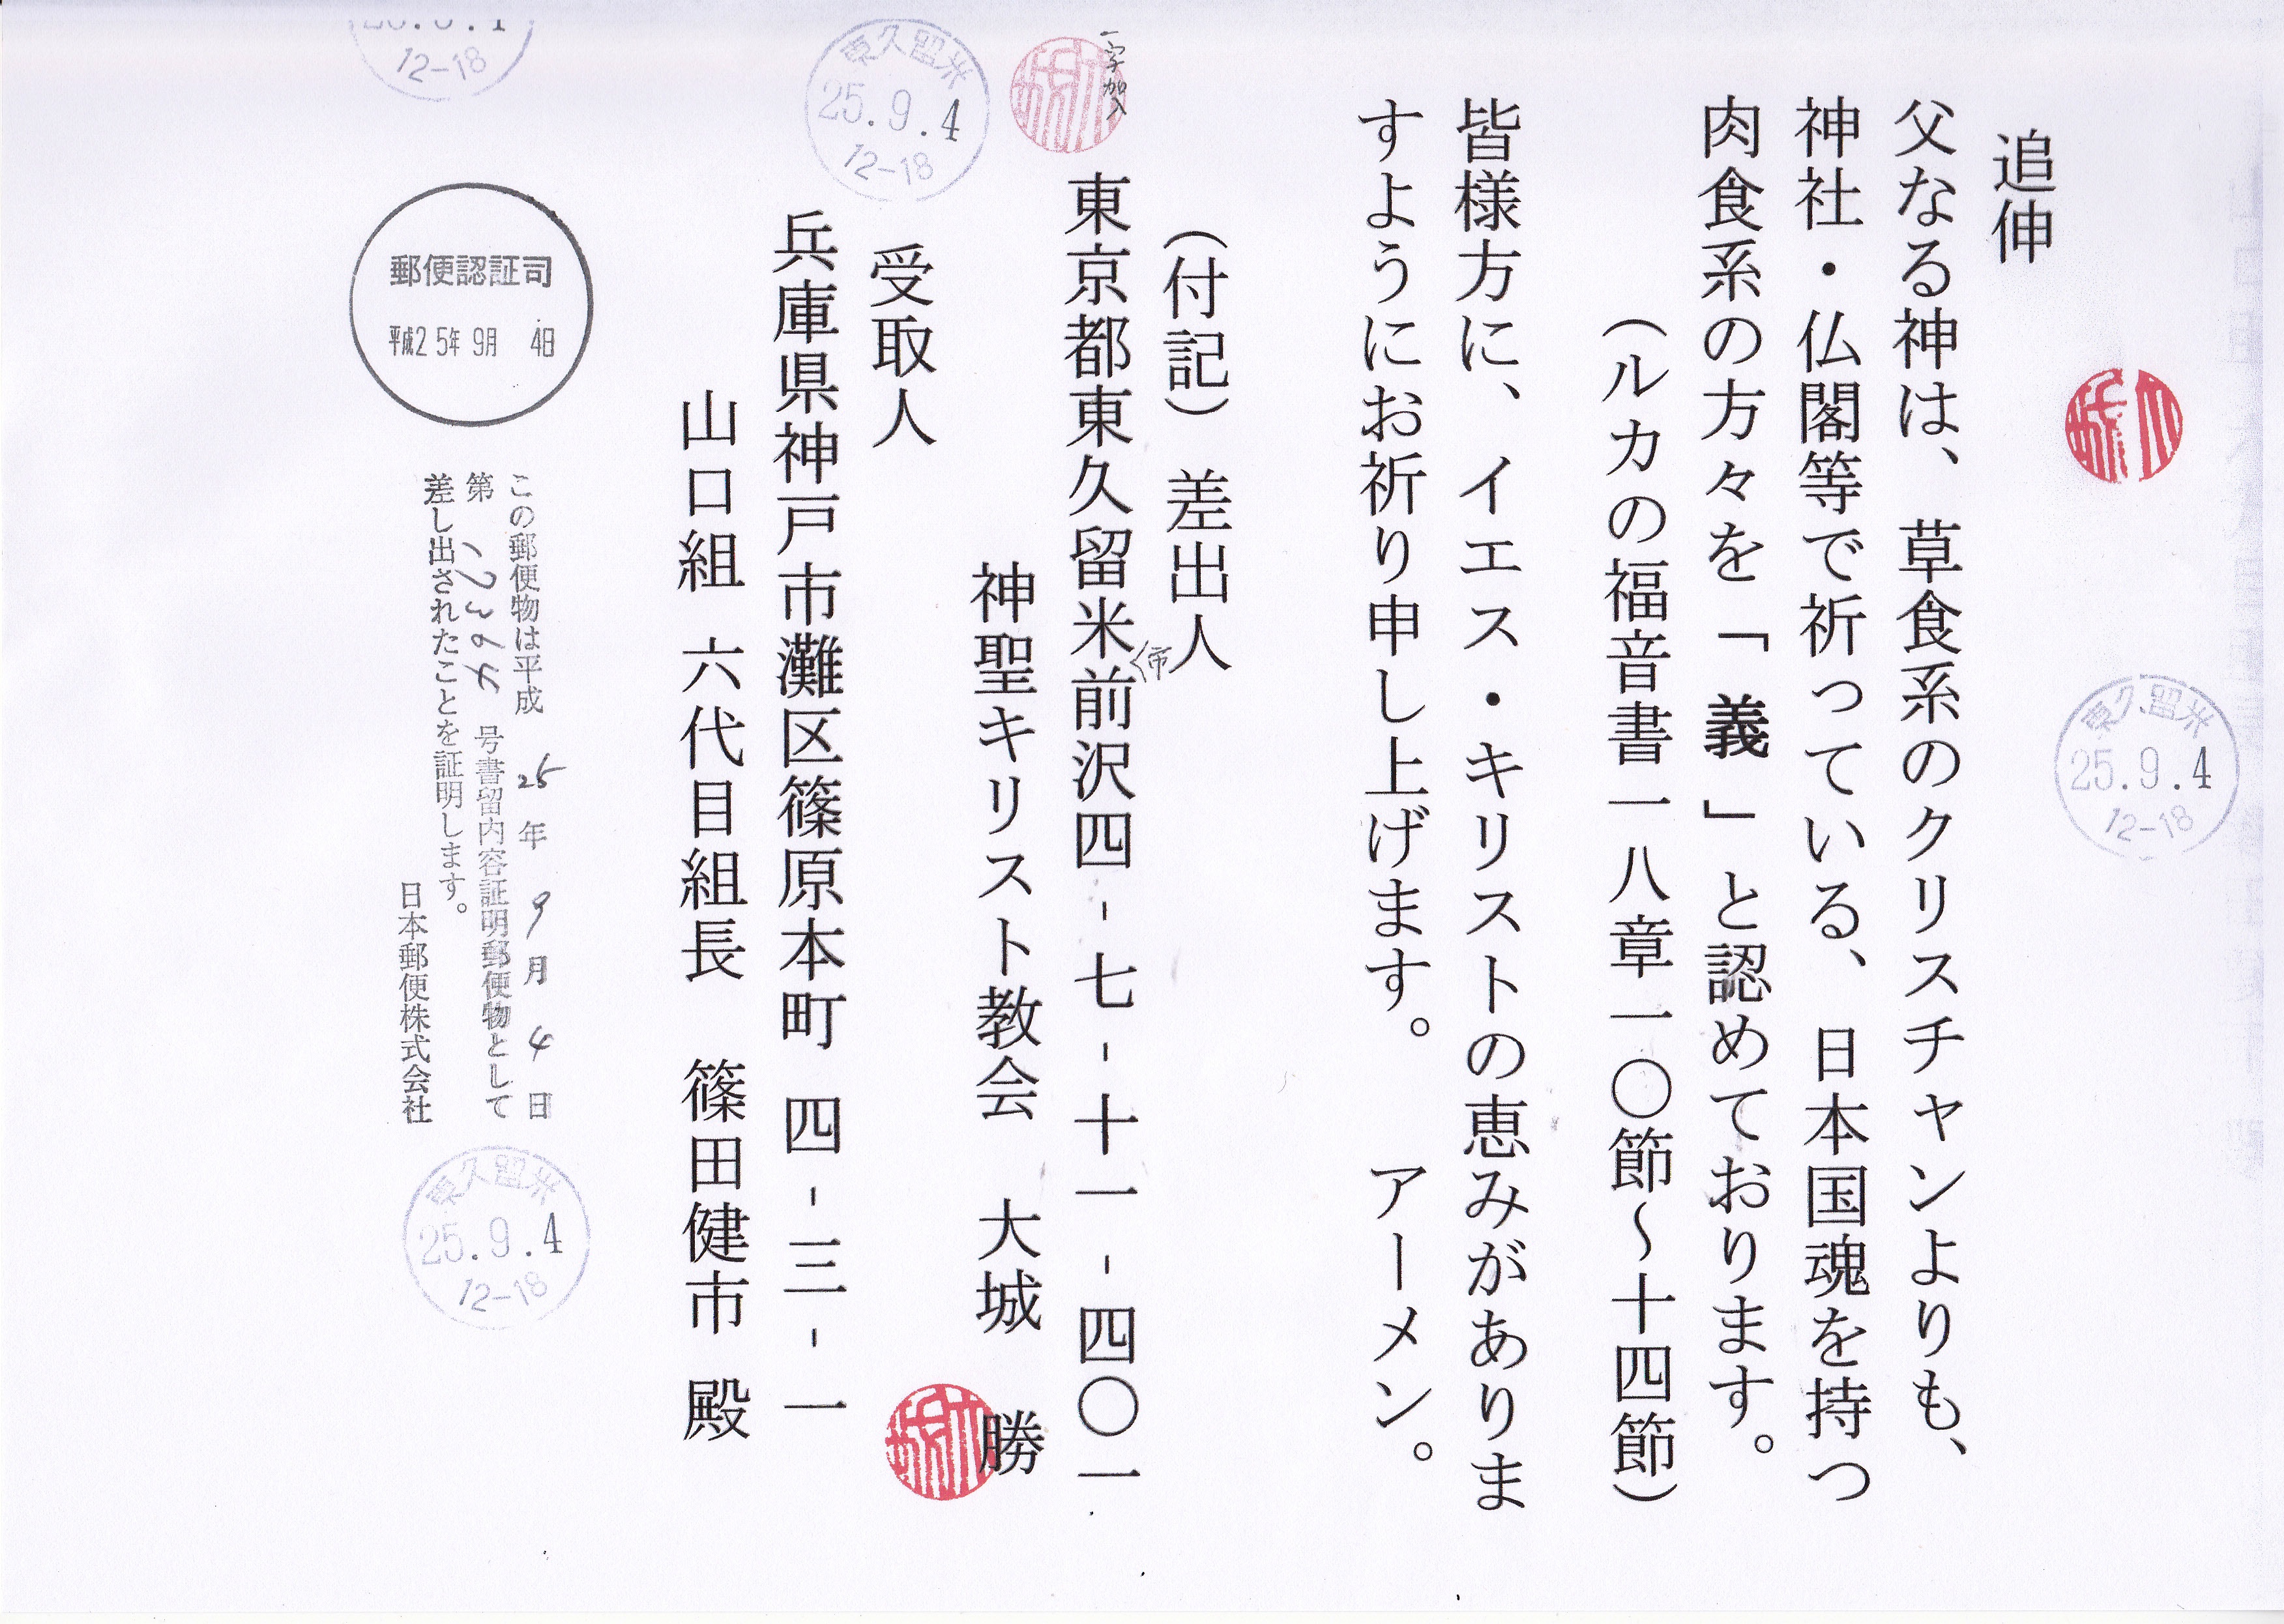 追伸
父なる神は、草食系のクリスチャンよりも、
神社・仏閣等で祈っている、日本国魂を持つ
肉食系の方々を「義」と認めております。
(ルカの福音書一八章一〇節～十四節)
皆様方に、イエス・キリストの恵みがありま
すようにお祈り申し上げます。 アーメン。
(付記) 差出人
東京都東久留米市前沢四-七-十一-四〇一
一字加入
神聖キリスト教会 大城 勝
受取人
兵庫県神戸市灘区篠原本町 四-三-一
山口組 六代目組長 篠田健市 殿
この郵便物は平成 25年 9月 4日
第 12364 号書留内容証明郵便物として
差し出されたことを証明します。
日本郵便株式会社
郵便認証司
平成25年 9月 4日
東久留米
25.9.4
12-18
東久留米
25.9.4
12-18
東久留米
25.9.4
12-18
12-18
大城